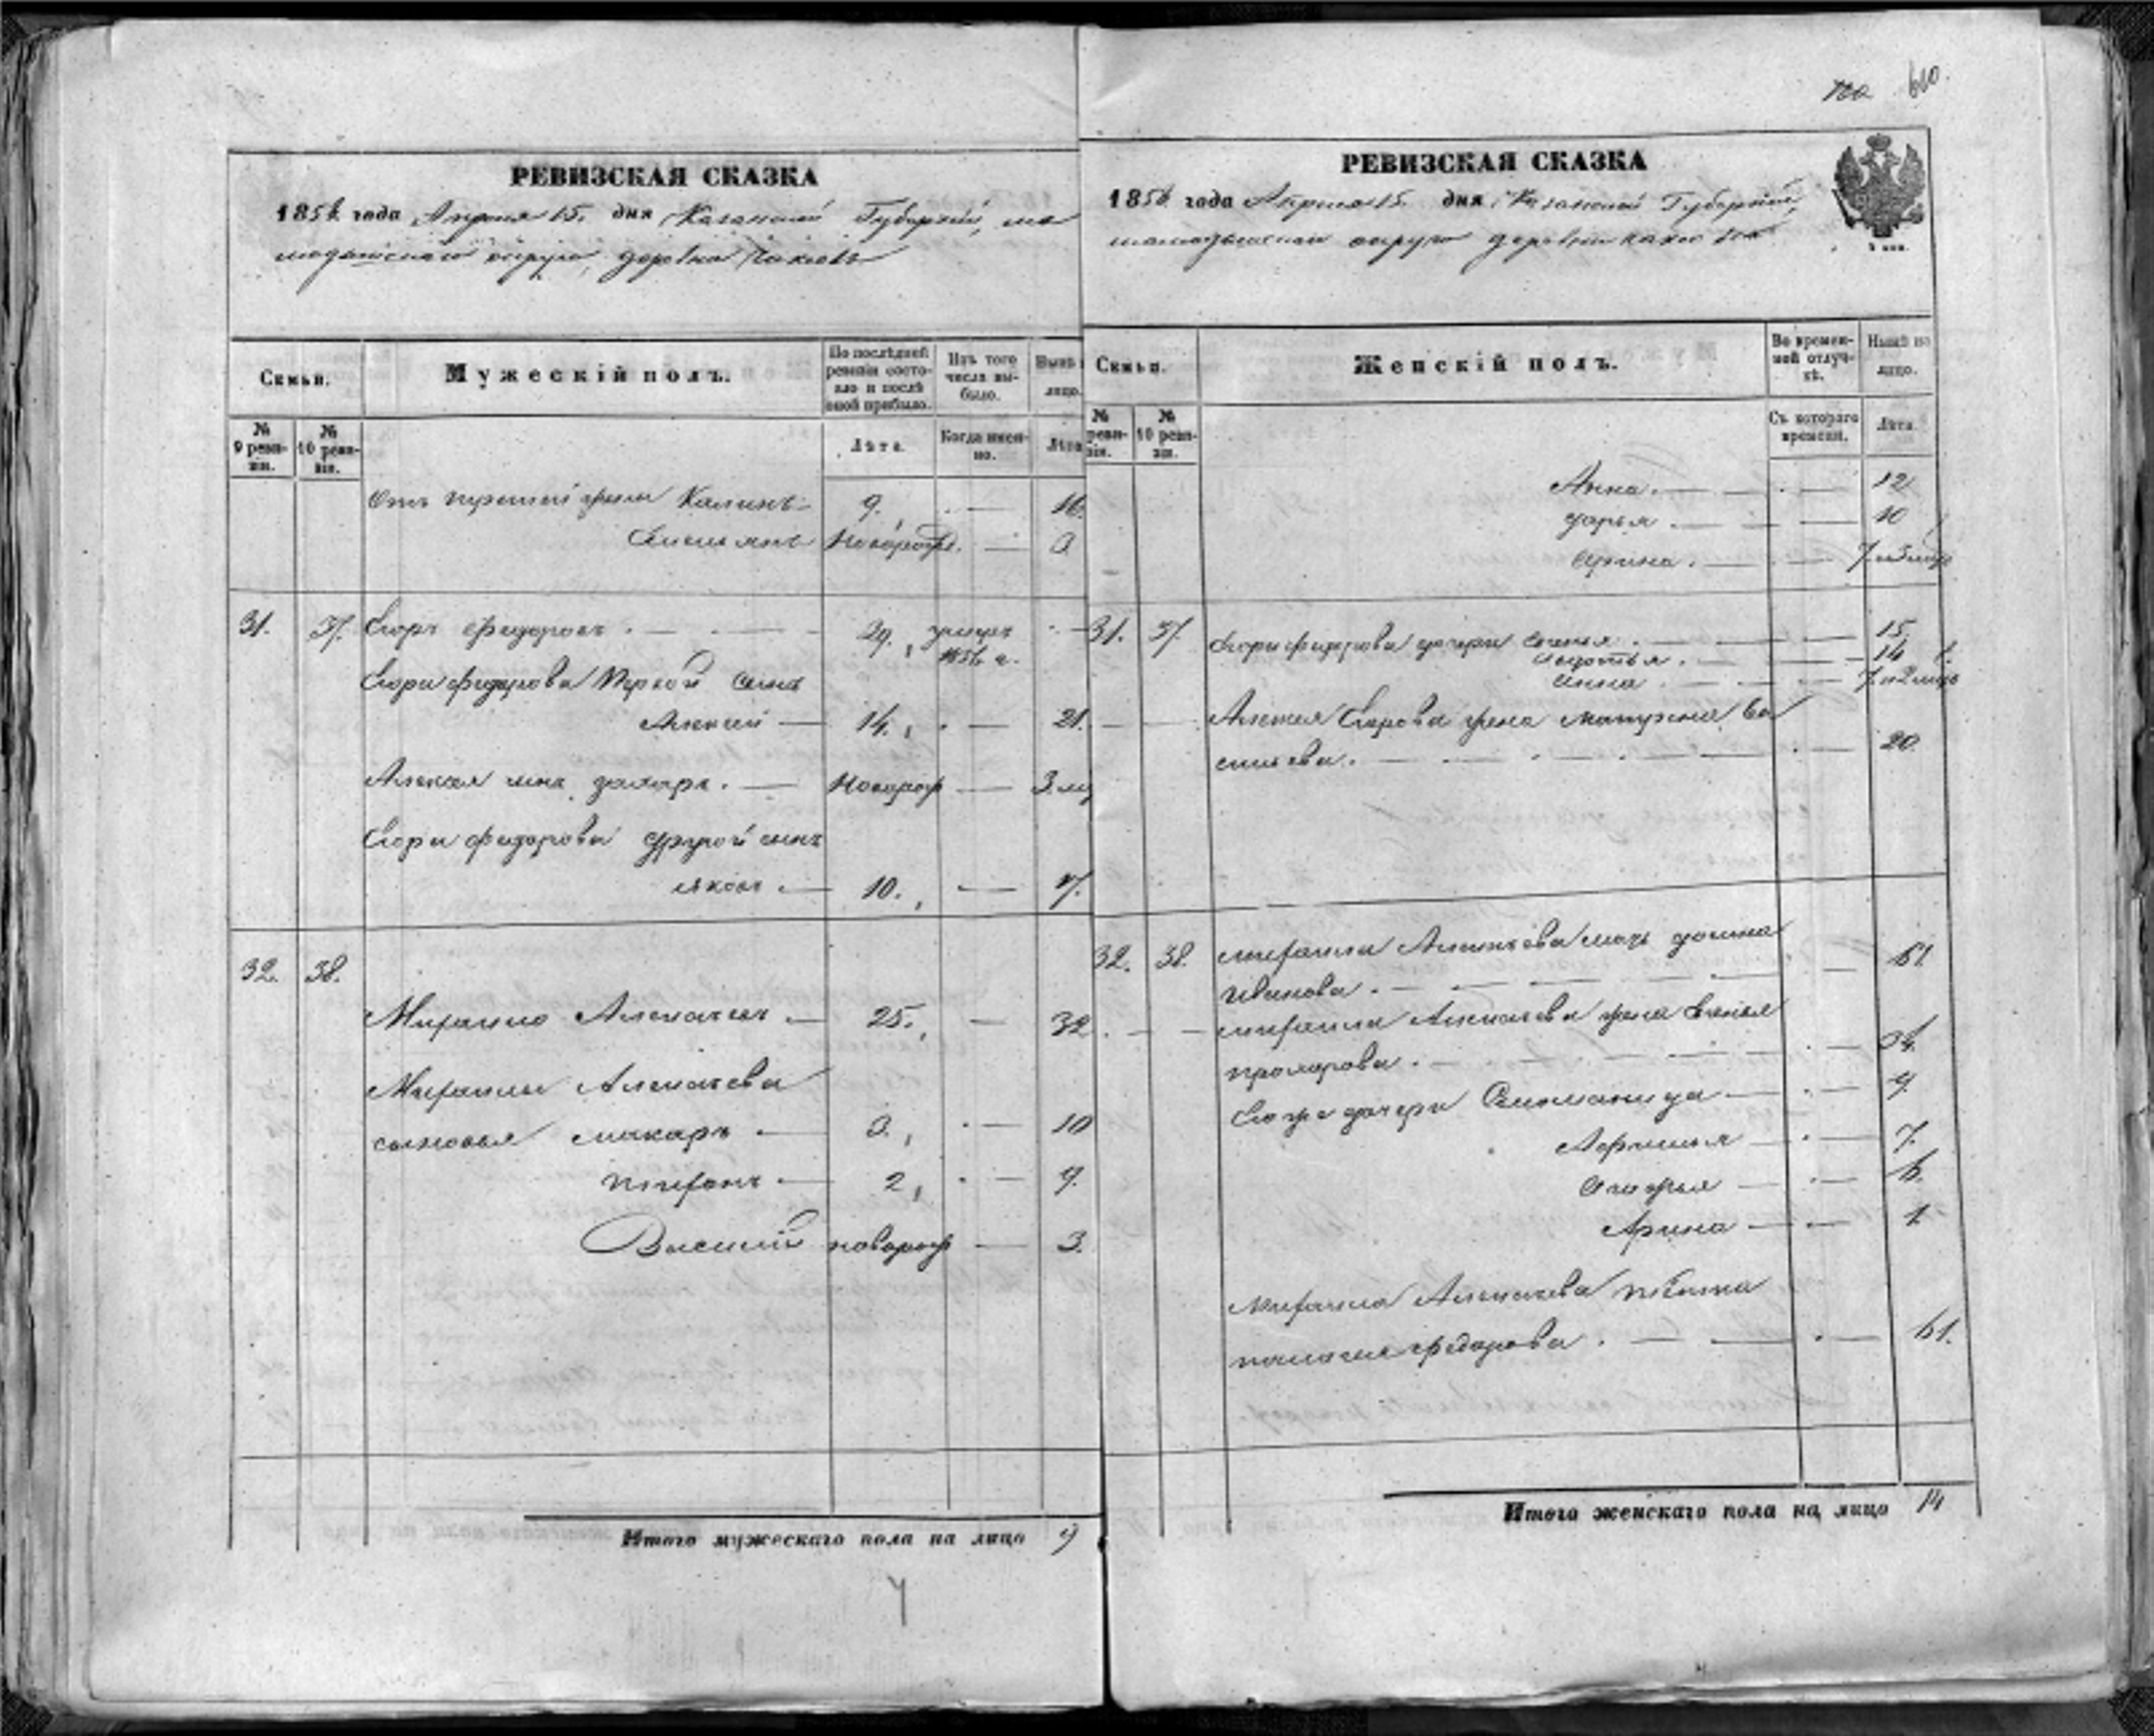 по 60.
РЕВИЗСКАЯ СКАЗКА
1856 года Апреля 15. дня Казанской Губерніи, ма
мадышскаго округа, деревни
Семьи.
Мужескій полъ.
По послѣдней ревизіи состояло и послѣ оной прибыло.
Изъ того числа выбыло.
Нынѣ лицо.
№ 9 ревизіи.
№ 10 ревизіи.
Лѣта.
Когда именно.
Лѣта
Отъ третьей жены Калинъ 9. 16.
Емельянъ Новорожд. 3
31. 37. Егоръ Федоровъ. 29, умеръ
1856 г.
Егора Федорова Первой сынъ
Алексей 14. 21.
Алексея сынъ Захаръ. Новорож 3. м
Егора Федорова другой сынъ
Яковъ 10. 17.
32. 38.
Михаило Алексеевъ 25. 32
Михаилы Алексеева
сыновья Макаръ 3. 10
Тихонъ 2, 9.
Василий новорож 3.
Итого мужескаго пола на лицо 9
РЕВИЗСКАЯ СКАЗКА
1856 года Апреля 15. дня Казанской Губерніи,
мамадышскаго округа деревни
Семьи.
Женскій полъ.
Во временной отлучкѣ.
Нынѣ на лицо.
№ ревизіи.
№ 10 ревизіи.
Съ котораго времени.
Лѣта
Анна. 12
Дарья. 10
Арина. 7 и 3 мцъ
31. 37. Егора Федорова дочери 15,
Авдотья. 14
Анна 7 и 2 мцъ
Алексея Егорова жена Матрена Ва
сильева. 20.
32. 38. Михаила Алексеева мать Домна
Иванова. 61.
Михаила Алексеева жена
прохорова. 34.
Его же дочери 9.
Афимья 7.
6.
Арина 1.
Михаила Алексеева тетка
палагея Федорова. 61.
Итого женскаго пола на лицо 14